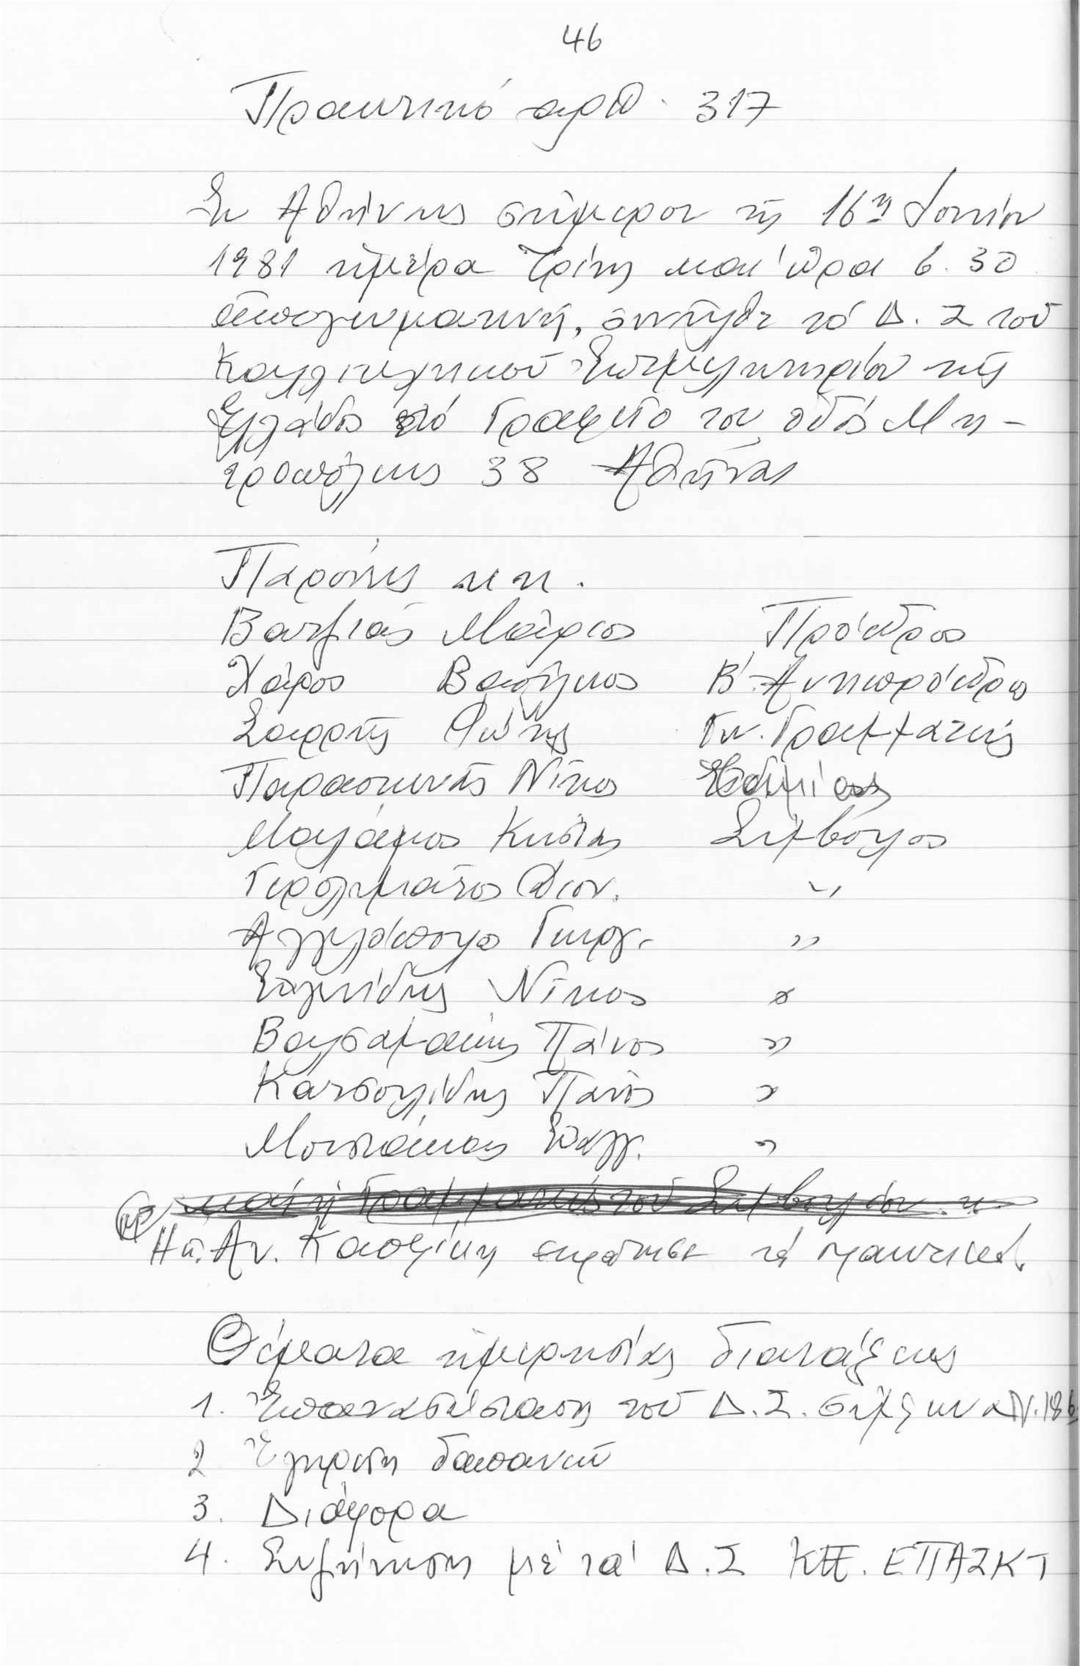 46
Πρακτικό αριθ. 317
Στην Ἀθήνα σήμερον τῆς 16η Ἰουνίου
1981 ἡμέρα Τρίτη και ὥρα 6.30
ἀπογευματινή, συνῆλθε τό Δ.Σ τοῦ
Καλλιτεχνικοῦ Ἐπιμελητηρίου τῆς
Ἑλλάδος στό Γραφεῖο του ὁδός Μη-
τροπόλεως 38 Ἀθήνας
Παρόντες κ κ.
Βατζιάς Μάριος Πρόεδρος
Χάρος Βασίλειος Β' Ἀντιπρόεδρος
Σαρρῆς Φώτης Γεν. Γραμματεύς
Παρασκευάς Νίκος Ταμίας
Μαλάμος Κώστας Σύμβουλος
Γερολυμάτος Διον. "
Ἀγγελόπουλος Γεώργ. "
Νίκος "
Βαλσαμάκης Πάνος "
Κατσουλίδης Πάνος "
Μουστάκας Εὐάγγ. "
καί ἡ Γραμματεύς τοῦ Συμβουλίου κ
Ἡ κ. Ἀν. ἐκράτησε τά πρακτικά.
Θέματα ἡμερησίας διατάξεως
1. Ἐπανασύσταση τοῦ Δ.Σ. σύμφωνα Ν.186
2 Ἔγκριση δαπανῶν
3. Διάφορα
4. Συζήτηση μέ τό Δ.Σ ΕΠΑΣΚΤ